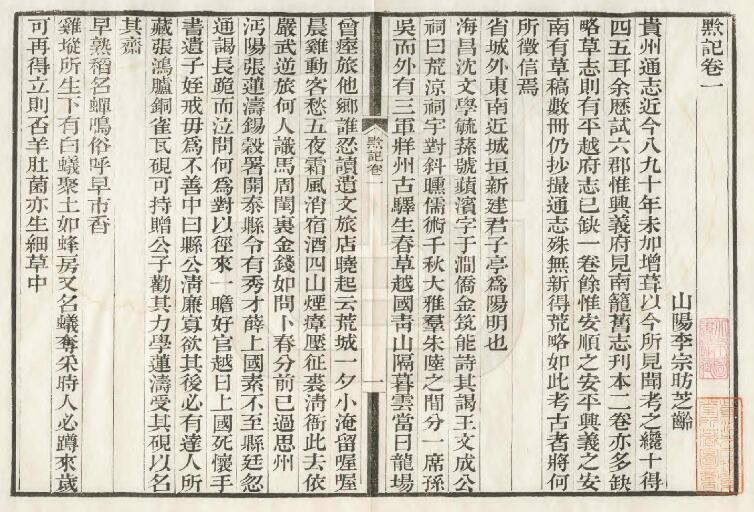 黔記卷一
山陽李宗昉芝齡
貴州通志近今八九十年未加增葺以今所見聞考之纔十得
四五耳余歷試六郡惟興義府見南籠舊志刊本二卷亦多缺
略草志則有平越府志已缺一卷餘惟安順之安平興義之安
南有草稿數冊仍抄撮通志殊無新得荒略如此考古者將何
所徵信焉
省城外東南近城垣新建君子亭為陽明也
海昌沈文學毓蓀號蘋濱字于澗僑金筑能詩其謁王文成公
祠曰荒涼祠宇對斜曛儒術千秋大雅羣朱陸之間分一席孫
吳而外有三軍牂州古驛生春草越國青山隔暮雲當日龍場
黔記卷一
一
曾瘞旅他鄉誰忍讀遺文旅店曉起云荒城一夕小淹留喔喔
晨雞動客愁五夜霜風消宿酒四山煙瘴壓征裘淸銜此去依
嚴武逆旅何人識馬周閭裏金錢如問卜春分前已過思州
沔陽張蓮濤錫穀署開泰縣令有秀才薛上國素不至縣廷忽
通謁長跪而泣問何為對以徑來一瞻好官越日上國死懷手
書遺子姪戒毋為不善中曰縣公淸廉寡欲其後必有達人所
藏張鴻臚銅雀瓦硯可持贈公子勸其力學蓮濤受其硯以名
其齋
早熟稻名蟬鳴俗呼早市香
雞㙡所生下有白蟻聚土如蜂房又名蟻奪采時人必蹲來歲
可再得立則否羊肚菌亦生細草中